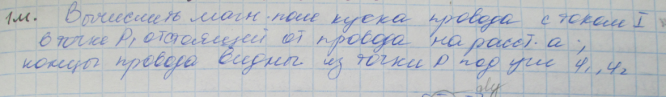 1м. Вычислить магн. поле куска провода с током I
в точке P, отстоящей от провода на расст. a;
концы провода видны из точки P под угл φ₁, φ₂